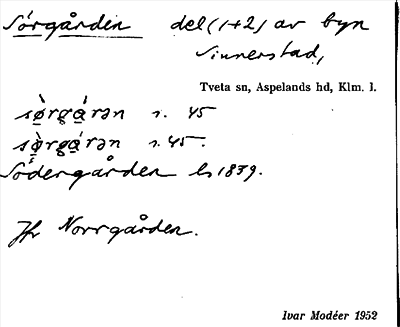 Sörgården del (1+2) av byn
Sinnerstad,
Tveta sn, Aspelands hd, Klm. l.
sö̀rgá̱rən s. 45
sö̀rgá̱rən s. 45.
Södergården ls 1839.
Jfr Norrgården.
Ivar Modéer 1952